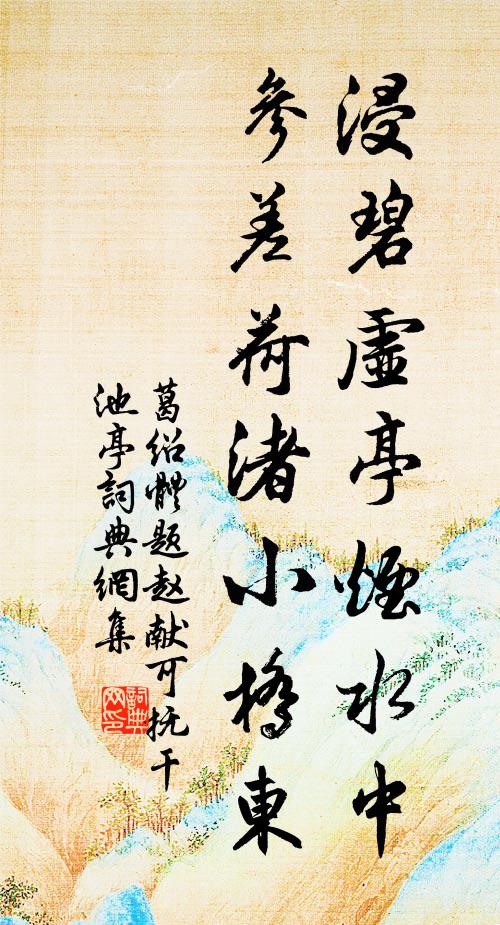 浸碧虛亭煙水中
參差荷渚小橋東
葛紹體題趙献可抚干
池亭詞典網集
詞典网印